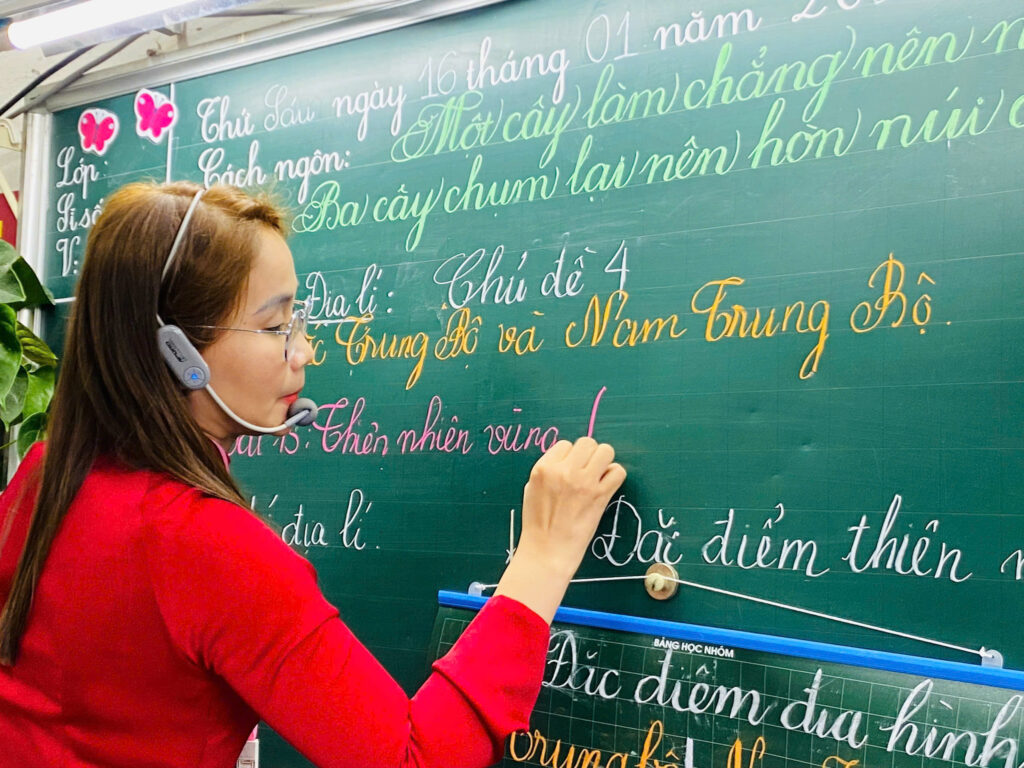 Thứ Sáu ngày 16 tháng 01 năm
Lớp:
Cách ngôn: Một cây làm chẳng nên
Sĩ số
Ba cây chụm lại nên hòn núi
V:
Địa lí: Chủ đề 4
Trung Bộ và Nam Trung Bộ.
15: Thiên nhiên vùng
địa lí.
Đặc điểm thiên
BẢNG HỌC NHÓM
Đặc điểm địa hình
Trung bộ